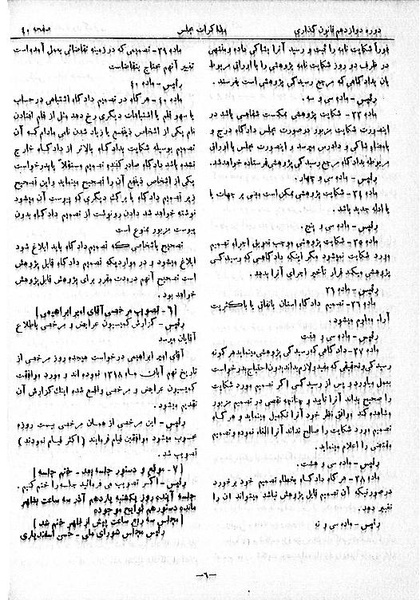 دوره دوازدهم قانون گذاری
مذاکرات مجلس
صفحه ۴۰
فوراً شکایت نامه را ثبت و رسید آنرا بشاکی بدهد و منتهی
در ظرف دو روز شکایت نامه و پیوستهای آنرا برای مربوطه
بآن بدادگاهی که مرجع رسیدگی پژوهشی است بفرستد.
رئیس - ماده سی و سه
ماده ۳۳ - شکایت پژوهشی ممکنست شفاهی باشد در
اینصورت شکایت مزبور در صورت مجلس دادگاه درج و
بامضای شاکی و دادرس میرسد و اینصورت با اوراق
مربوطه بدادگاه مرجع رسیدگی پژوهشی فرستاده خواهد شد.
رئیس - ماده سی و چهار.
ماده ۳۴ - شکایت پژوهشی ممکن است مبنی بر جهات یا
ادله جدید باشد.
رئیس - ماده سی و پنج.
ماده ۳۵ - شکایت پژوهشی موجب تعویق اجرای تصمیم
مورد شکایت نمیشود مگر اینکه دادگاهی که رسیدگی
پژوهشی میکند قرار تأخیر اجرای آنرا بدهد.
رئیس - ماده ۳۶
ماده ۳۶ - تصمیم دادگاه استان باتفاق یا باکثریت
آراء معلوم میشود.
رئیس - ماده سی و هفت
ماده ۳۷ - دادگاهی که رسیدگی پژوهشی مینماید هرگونه
رسیدگی و تحقیقی که مفید و لازم بداند بدون احتیاج بدرخواست
بعمل میاورد و پس از رسیدگی اگر تصمیم مورد شکایت
را صحیح بداند آنرا تأیید و چنانچه نقصی در تصمیم مزبور
مشاهده کند وفق نظر خود آنرا تکمیل مینماید و هرگاه
تصمیم مورد شکایت را صالح نداند آنرا الغاء نموده و تصمیم
مقتضی را اعلام مینماید.
رئیس - ماده سی و هشت.
ماده ۳۸ - هرگاه دادگاه بخطای تصمیم خود برخورد
در صورتیکه آن تصمیم قابل پژوهش نباشد میتواند آن را
تغییر دهد.
رئیس - ماده سی و نه
ماده ۳۹ - تصمیمی که در زمینه تقاضائی بعمل آمده است
تغییر آنهم محتاج بتقاضاست
رئیس - ماده ۴۰
ماده ۴۰ - هرگاه در تصمیم دادگاه اشتباهی در حساب
یا سهو قلم یا اشتباهات دیگری رخ دهد مثل از قلم افتادن
نام یکی از اشخاص ذینفع یا زیاد شدن نامی مادام که آن
تصمیم بوسیله شکایت بدادگاه بالاتر از دادگاه خارج
نشده باشد دادگاه صادرکننده تصمیم مستقلاً یا بدرخواست
یکی از اشخاص ذینفع آن را تصحیح مینماید و این تصحیح
زیر تصمیم دادگاه یا برگ دیگری که پیوست آن میشود
نوشته خواهد شد دادن رونوشت از تصمیم دادگاه بدون
پیوست مزبور ممنوع است
تصحیح باشخاصی که تصمیم دادگاه باید ابلاغ شود
ابلاغ میشود و در مواردیکه تصمیم دادگاه قابل پژوهش
است تصحیح آنهم در مدت مقرر برای پژوهش قابل پژوهش
خواهد بود.
[۶ - تصویب مرخصی آقای امیر ابراهیمی]
رئیس - گزارش کمیسیون عرایض و مرخصی باطلاع
آقایان میرسد
آقای امیر ابراهیمی درخواست هیجده روز مرخصی از
تاریخ نهم آبان ماه ۱۳۱۸ نموده اند و مورد موافقت
کمیسیون عرایض و مرخصی واقع شده اینک گزارش آن
تقدیم میشود.
رئیس - این مرخصی از همان مرخصی بیست روزه
محسوب میشود موافقین قیام فرمایند (اکثر قیام نمودند)
تصویب شد.
[۷ - موقع و دستور جلسه بعد - ختم جلسه]
رئیس - اگر تصویب می فرمائید جلسه را ختم کنیم.
جلسه آینده روز یکشنبه یازدهم آذر سه ساعت بظهر
مانده دستور هم لوایح موجوده
(مجلس سه ربع ساعت پیش از ظهر ختم شد)
رئیس مجلس شورای ملی - حسن اسفندیاری
-۶-